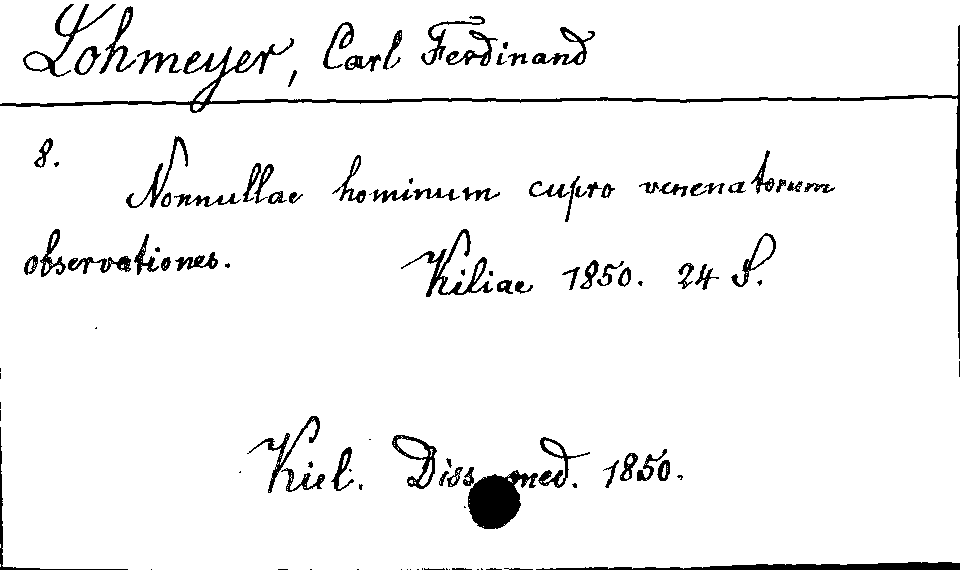 Lohmeyer, Carl Ferdinand
8.
Nonnullae hominum cupro venenatorum
observationes. Kiliae 1850. 24 S.
Kiel. Diss. med. 1850.